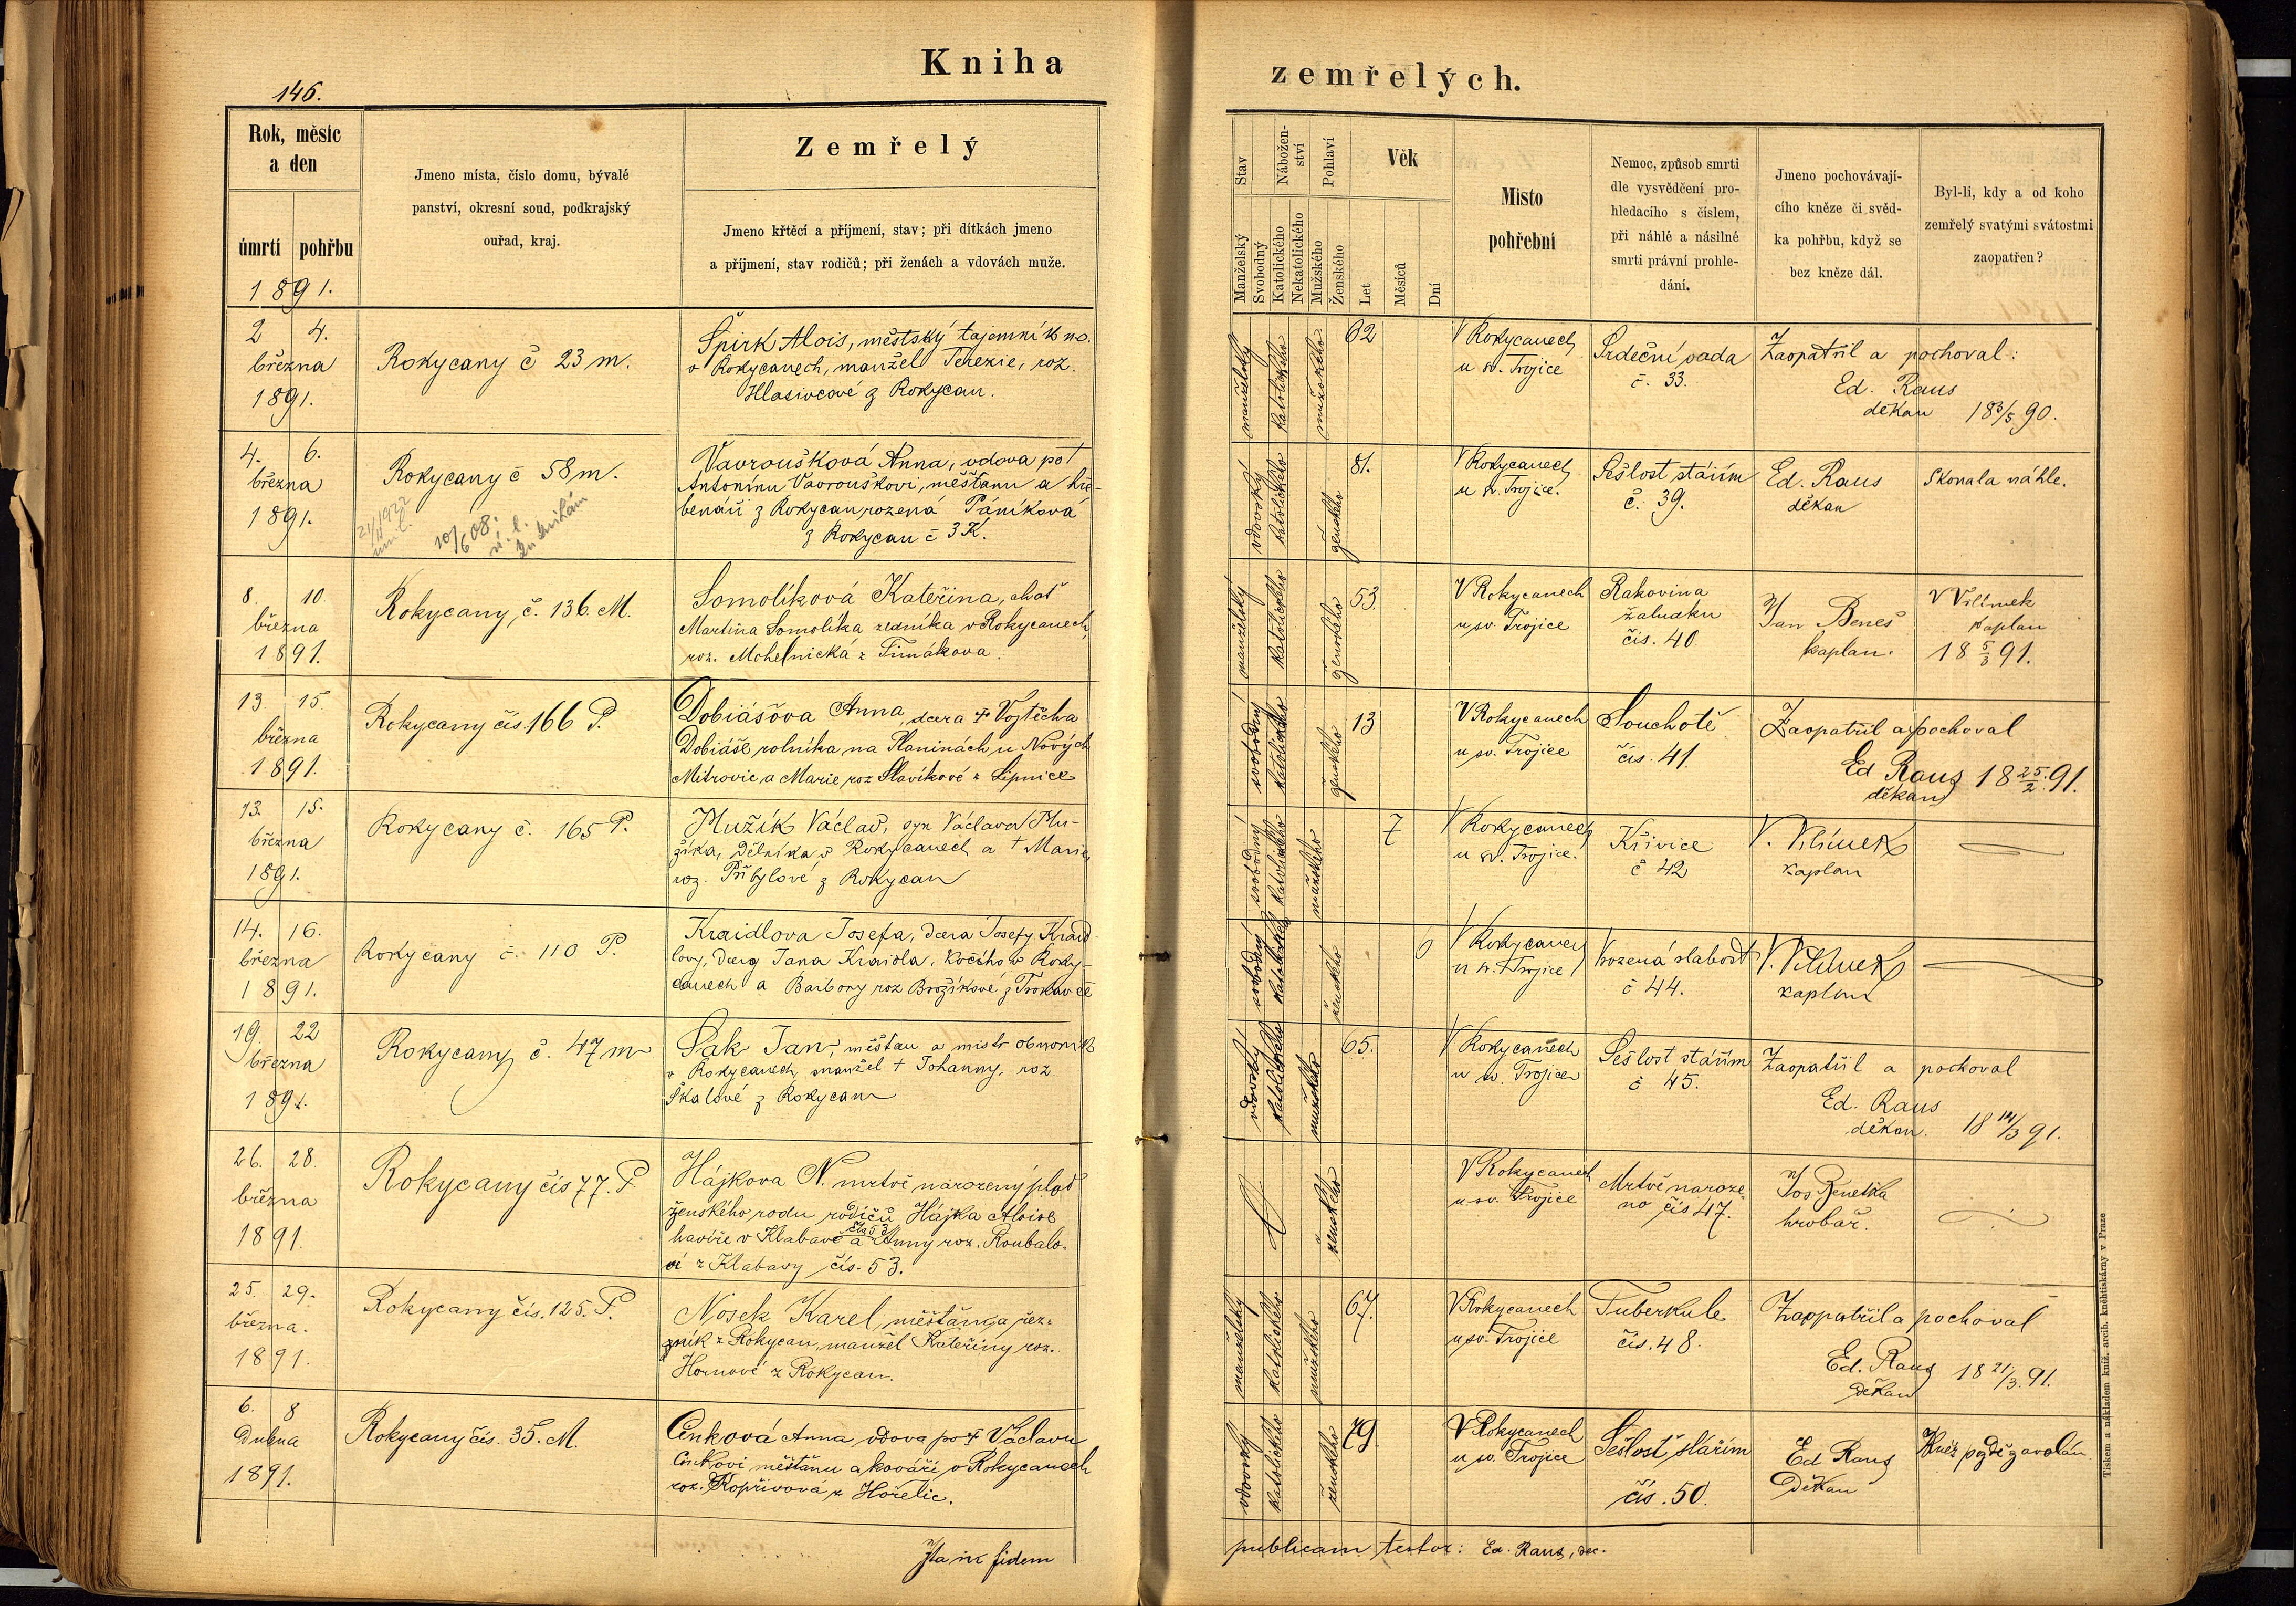 Kniha
zemřelých.
146.
Rok, měsíc
a den
úmrtí pohřbu
1891.
Jmeno místa, číslo domu, bývalé
panství, okresní soud, podkrajský
ouřad, kraj.
Zemřelý
Jmeno křtěcí a příjmení, stav; při dítkách jmeno
a příjmení, stav rodičů; při ženách a vdovách muže.
Stav
Manželský
Svobodný
Nábožen-
ství
Katolického
Nekatolického
Pohlaví
Mužského
Ženského
Věk
Let
Měsíců
Dní
Místo
pohřební
Nemoc, způsob smrti
dle vysvědčení pro-
hledacího s číslem,
při náhlé a násilné
smrti právní prohle-
dání.
Jmeno pochovávají-
cího kněze či svěd-
ka pohřbu, když se
bez kněze dál.
Byl-li, kdy a od koho
zemřelý svatými svátostmi
zaopatřen?
2 4.
března
1891.
Rokycany č 23 m.
Špirk Alois, městský tajemník
v Rokycanech, manžel Terezie, roz.
Hlasivcové z Rokycan.
manželský
katolického
mužského
62
V Rokycanech
u sv. Trojice
Srdeční vada
č. 33.
Zaopatřil a pochoval:
Ed. Raus
děkan 18 3/5 90.
4. 6.
března
1891.
Rokycany č 58 m.
10/6 08.
Vavroušková Anna, vdova po †
Antonínu Vavrouškovi, měšťanu a hře-
benáři z Rokycan rozená Páníková
z Rokycan č 3 K.
vdovský
katolického
ženského
81.
V Rokycanech
u sv. Trojice.
Sešlost stářím
č. 39.
Ed. Raus
děkan
Skonala náhle.
8. 10.
března
1891.
Rokycany, č. 136. M.
Somolíková Kateřina, choť
Martina Somolíka zedníka v Rokycanech,
roz. Mohelnická z Timákova.
manželský
katolického
ženského
53.
V Rokycanech
u sv. Trojice
Rakovina
žaludku
čís. 40.
Jan Beneš
kaplan.
V Vilímek
kaplan
18 5/3 91.
13. 15.
března
1891.
Rokycany čís. 166 P.
Dobiášova Anna, dcera † Vojtěcha
Dobiáše rolníka na Planinách u Nových
Mitrovic, a Marie roz Slavíkové z Lipnice
svobodný
katolického
ženského
13
V Rokycanech
u sv. Trojice
Souchotě
čís. 41.
Zaopatřil a pochoval
Ed Raus 18 25/2 91.
děkan
13. 15.
března
1891.
Rokycany č. 165 P.
Mužík Václav, syn Václava Mu-
žíka, dělníka v Rokycanech a † Marie,
roz. Přibylové z Rokycan
svobodný
katolického
mužského
7
V Rokycanech
u sv. Trojice.
Křivice
č 42
V. Vilímek
kaplan
14. 16.
března
1891.
Rokycany č. 110 P.
Kraidlova Josefa, dcera Josefy Kraid-
lovy, dcery Jana Kraidla, kočího v Roky-
canech a Barbory roz Brožíkové z Trokavce
svobodný
katolického
ženského
6
V Rokycanech
u sv. Trojice
Vrozená slabost
č 44.
V. Vilímek
kaplan
19. 22
března
1891.
Rokycany č. 47 m
Šak Jan, měšťan a mistr obuvník
v Rokycanech, manžel † Johanny, roz
Škalové z Rokycan
vdovský
katolického
mužského
65.
V Rokycanech
u sv. Trojice
Sešlost stářím
č 45.
Zaopatřil a pochoval
Ed. Raus
děkan. 18 14/3 91.
26. 28.
března
1891.
Rokycany čís 77. P.
Hájkova N. mrtvě narozený plod
ženského rodu rodičů Hájka Aloise
havíře v Klabavě čís 53 a Anny roz. Roubalo-
vé z Klabavy čís. 53.
ženského
V Rokycanech
u sv. Trojice
Mrtvě naroze-
no čís 47.
Jos Benetka
hrobař.
25. 29.
března.
1891.
Rokycany čís. 125. P.
Nosek Karel, měšťan a řez-
ník z Rokycan, manžel Kateřiny roz.
Hornové z Rokycan.
manželský
katolického
mužského
67.
V Rokycanech
u sv. Trojice
Tuberkule
čís. 48.
Zaopatřil a pochoval
Ed. Raus 18 21/3. 91.
děkan
6. 8
dubna
1891.
Rokycany čís. 35. M.
Cinková Anna vdova po † Václavu
Cinkovi měšťanu a kováři v Rokycanech
roz. Kopřivova z Hořelic.
vdovský
katolického
ženského
79.
V Rokycanech
u sv. Trojice
Sešlost stářím
čís. 50.
Ed Raus
Děkan
Kněz pozdě zavolán.
Ita in fidem
publicam testor: Ed. Raus, dec.
Tiskem a nákladem kníž. arcib. knihtiskárny v Praze